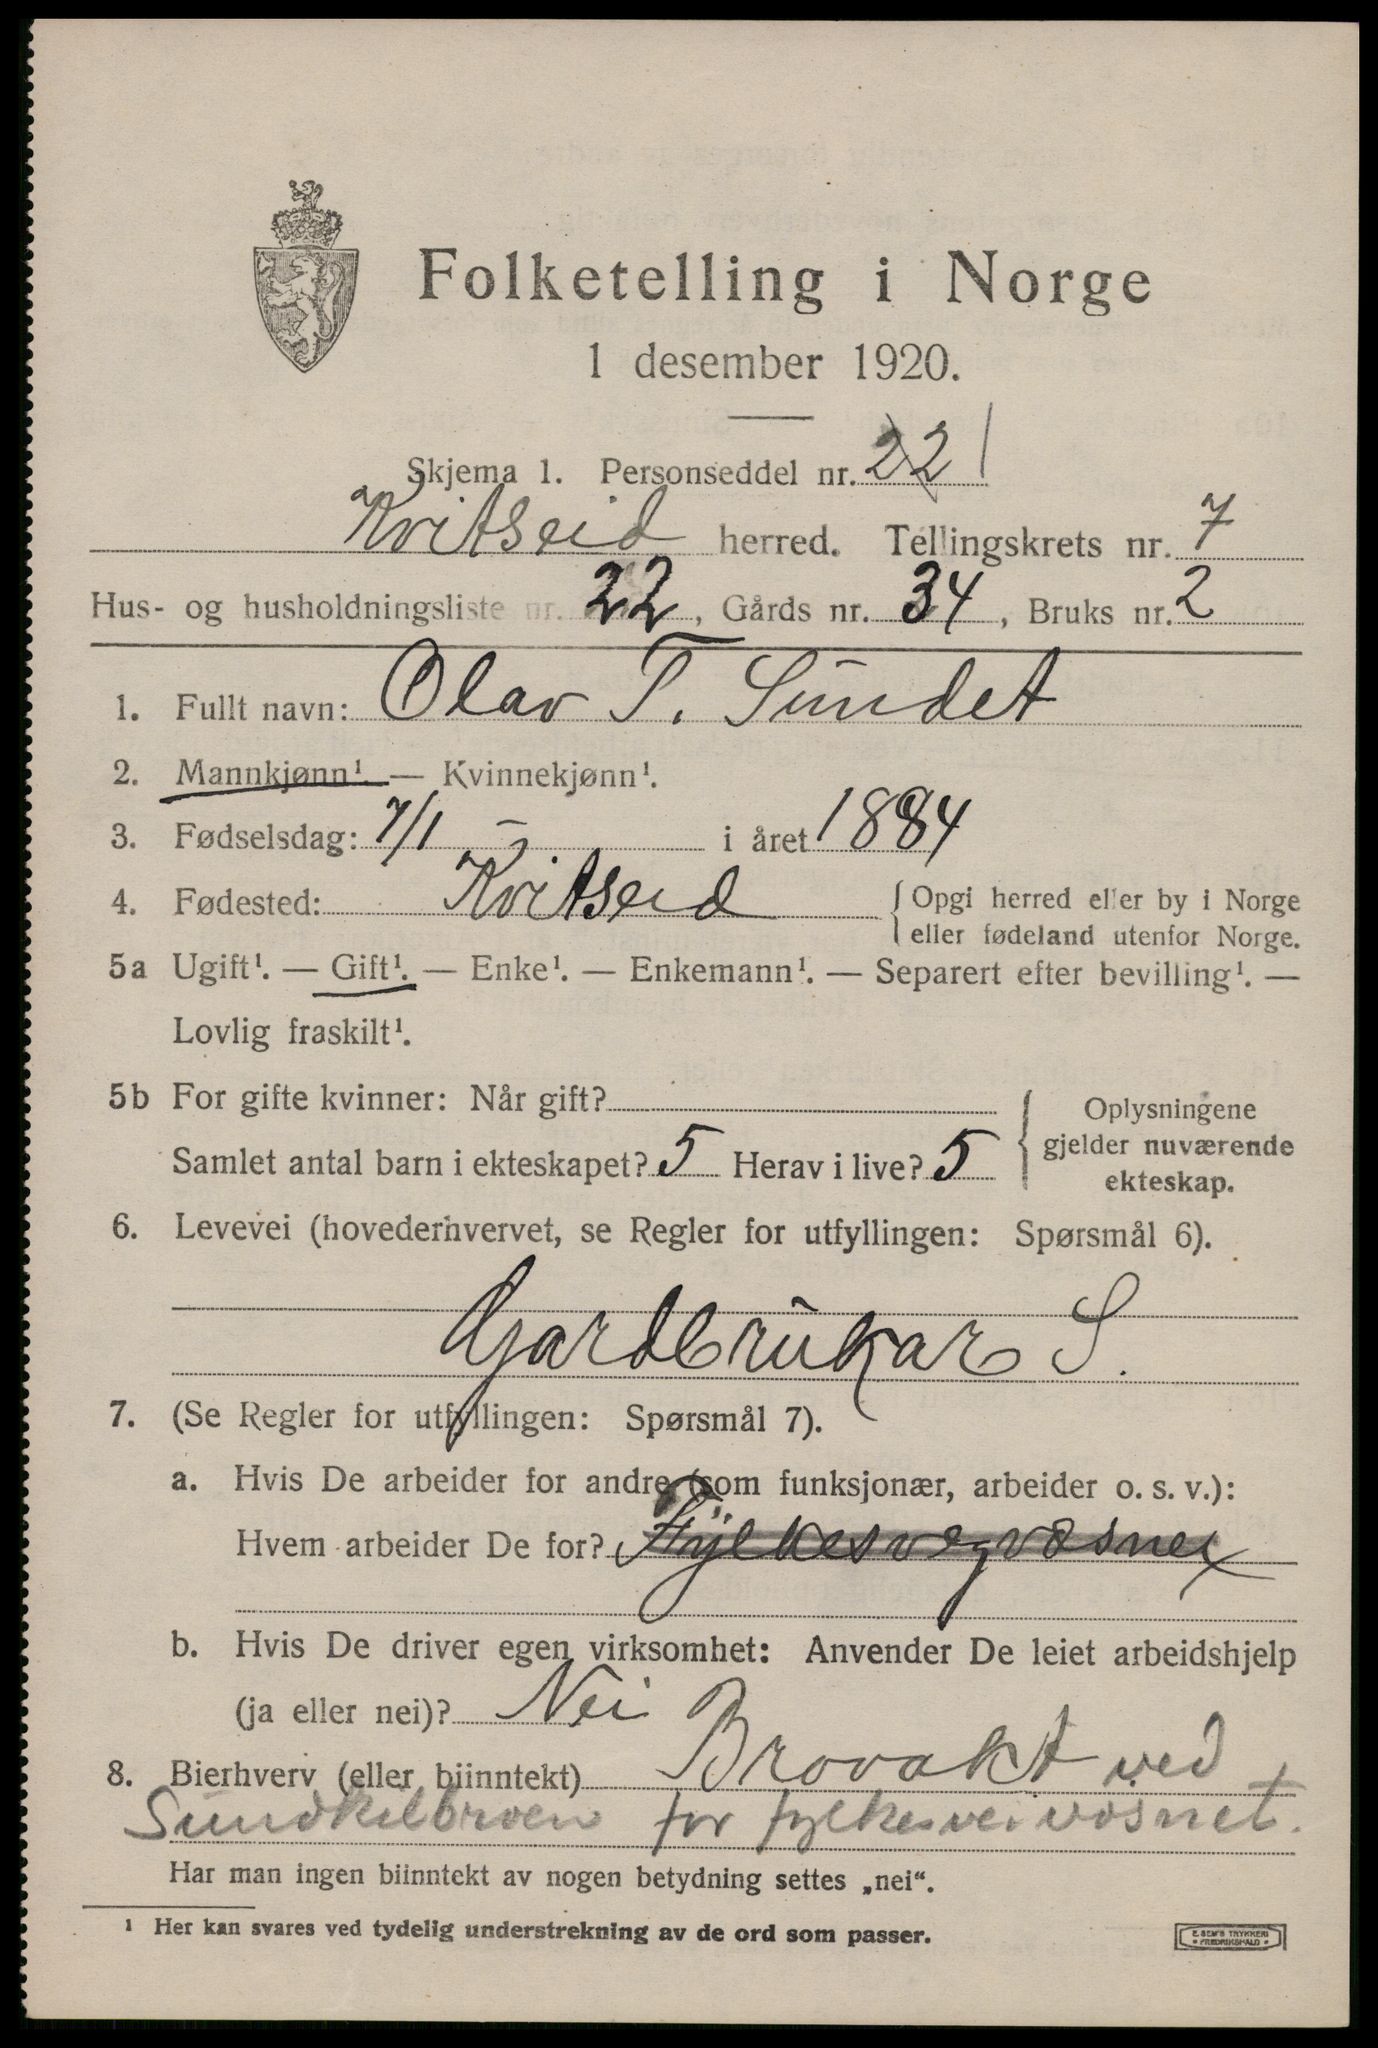 Folketelling i Norge
1 desember 1920.
Skjema 1. Personseddel nr. 22 1
Kvitseid herred. Tellingskrets nr. 7
Hus- og husholdningsliste nr. 22, Gårds nr. 34, Bruks nr. 2
1. Fullt navn: Olav T. Sundet
2. Mannkjønn¹. — Kvinnekjønn¹.
3. Fødselsdag: 7/1 – i året 1884
4. Fødested: Kvitseid { Opgi herred eller by i Norge
eller fødeland utenfor Norge.
5a Ugift¹. — Gift¹. — Enke¹. — Enkemann¹. — Separert efter bevilling¹. —
Lovlig fraskilt¹.
5b For gifte kvinner: Når gift?
Samlet antal barn i ekteskapet? 5 Herav i live? 5
{ Oplysningene
gjelder nuværende
ekteskap.
6. Levevei (hovederhvervet, se Regler for utfyllingen: Spørsmål 6).
Gardbrukar S.
7. (Se Regler for utfyllingen: Spørsmål 7).
a. Hvis De arbeider for andre (som funksjonær, arbeider o. s. v.):
Hvem arbeider De for? Fylkesvegvæsnet
b. Hvis De driver egen virksomhet: Anvender De leiet arbeidshjelp
(ja eller nei)? Nei
8. Bierhverv (eller biinntekt) Brovakt ved
Sundkilbroen for fylkesveivæsnet.
Har man ingen biinntekt av nogen betydning settes „nei“.
¹ Her kan svares ved tydelig understrekning av de ord som passer.
E. SEM'S TRYKKERI
• FREDRIKSHALD •